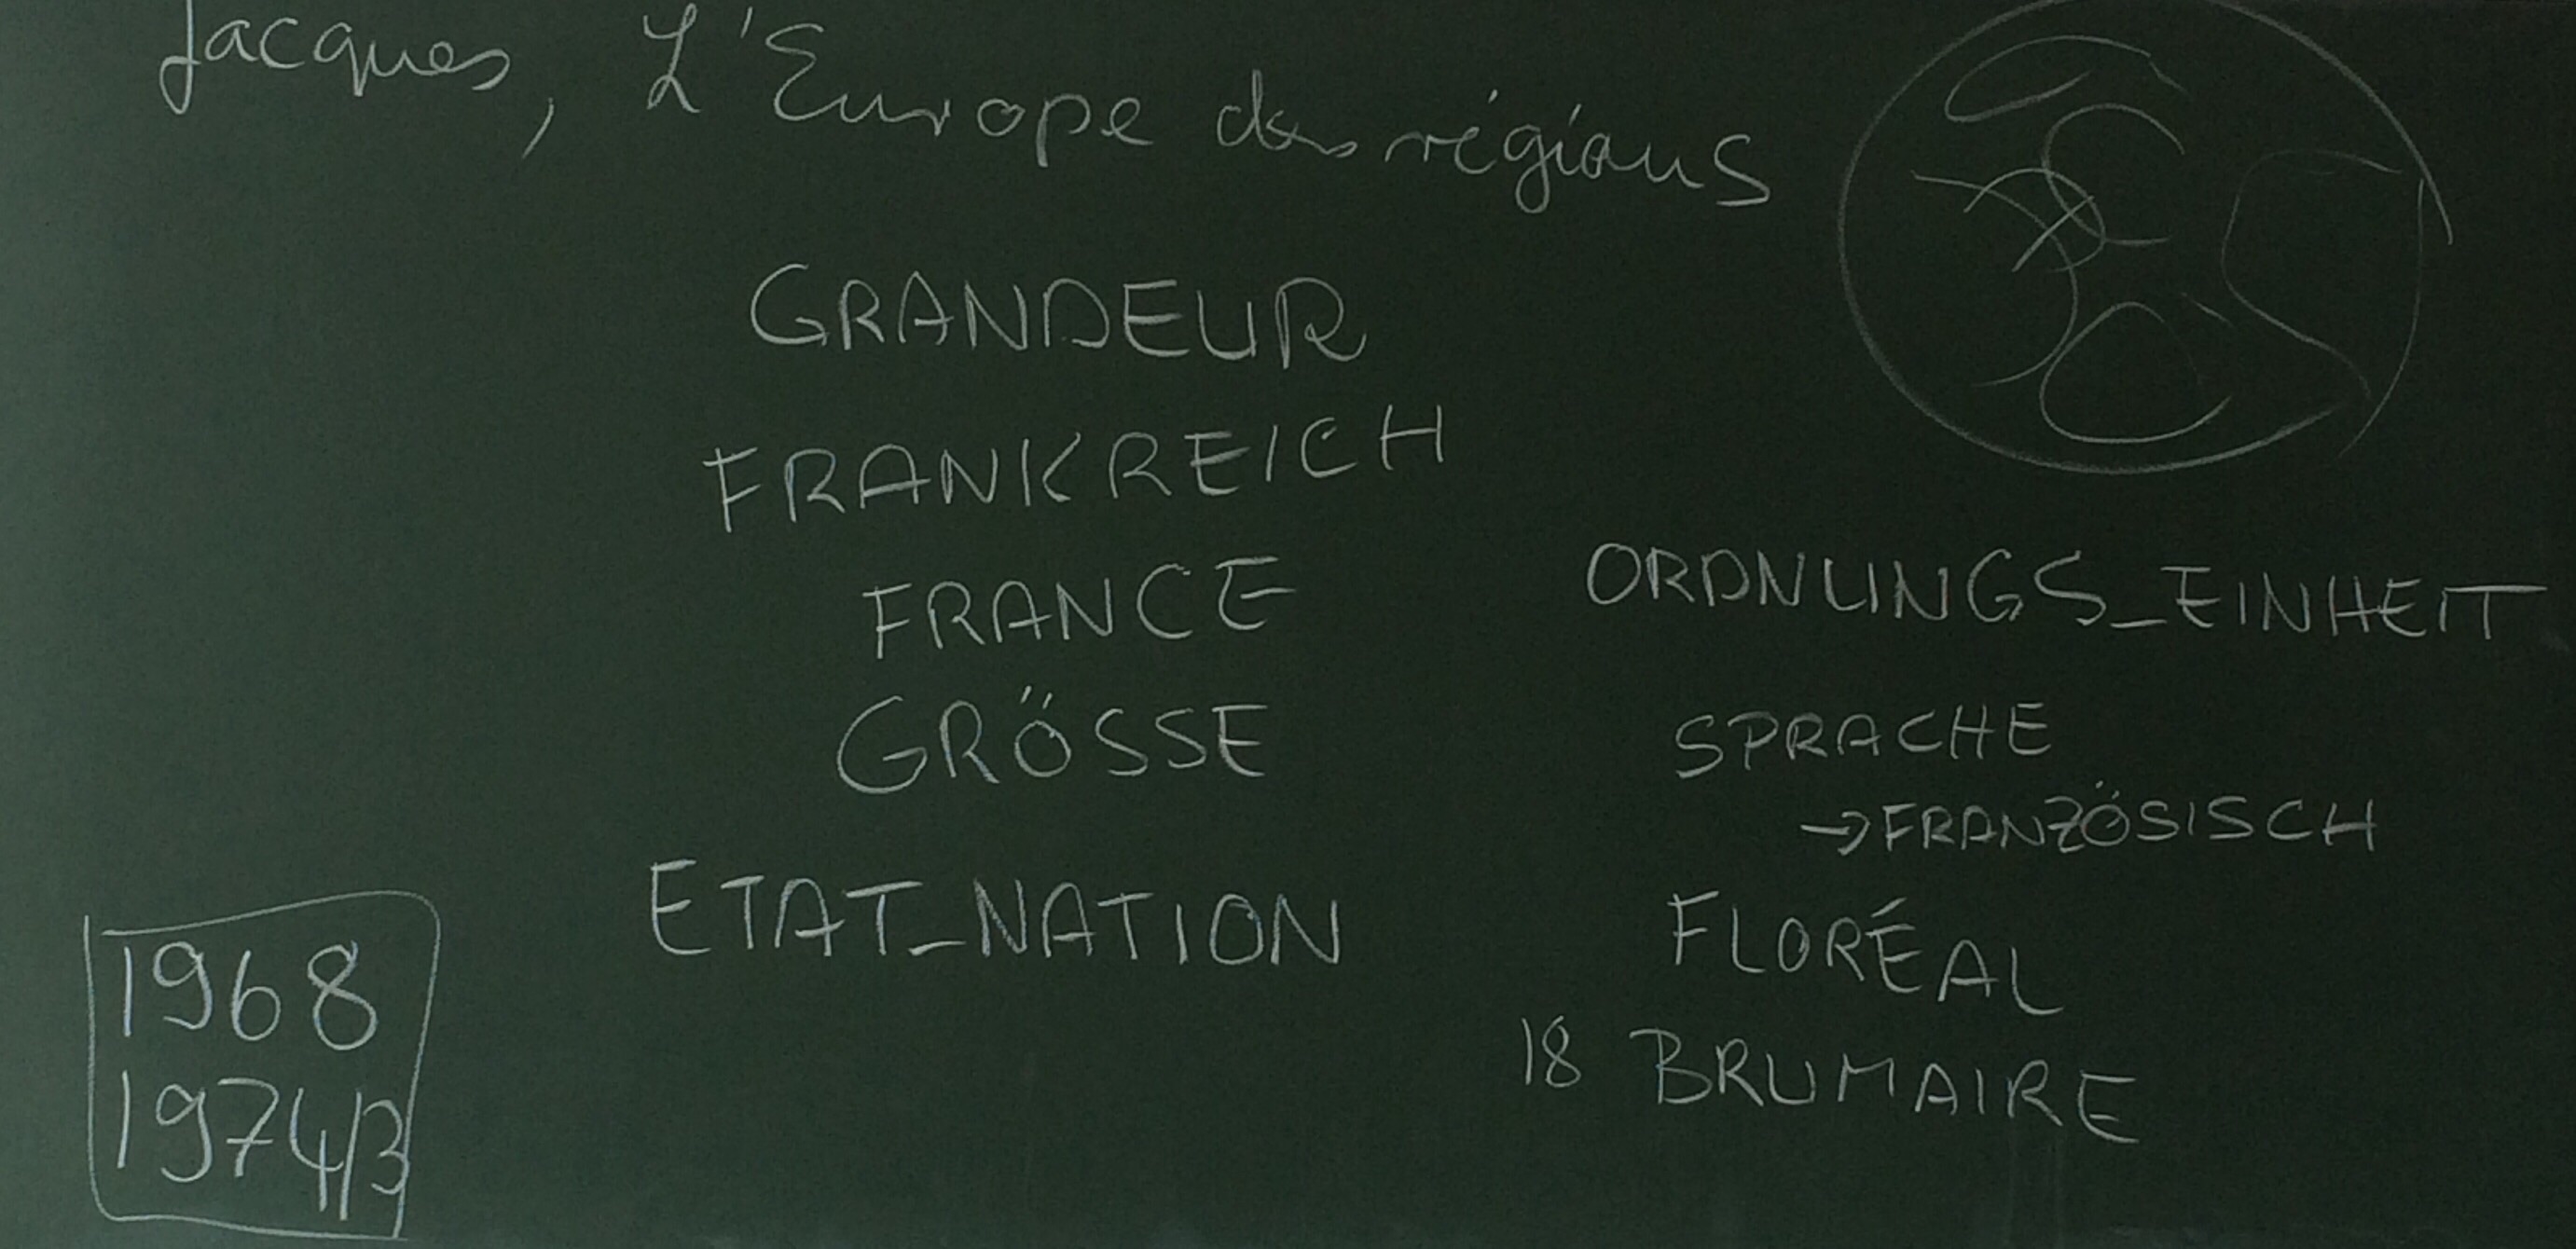 Jacques, L'Europe des régions
GRANDEUR
FRANKREICH
FRANCE
GRÖSSE
ETAT_NATION
1968
1974/3
ORDNUNGS_EINHEIT
SPRACHE
→FRANZÖSISCH
FLORÉAL
18 BRUMAIRE